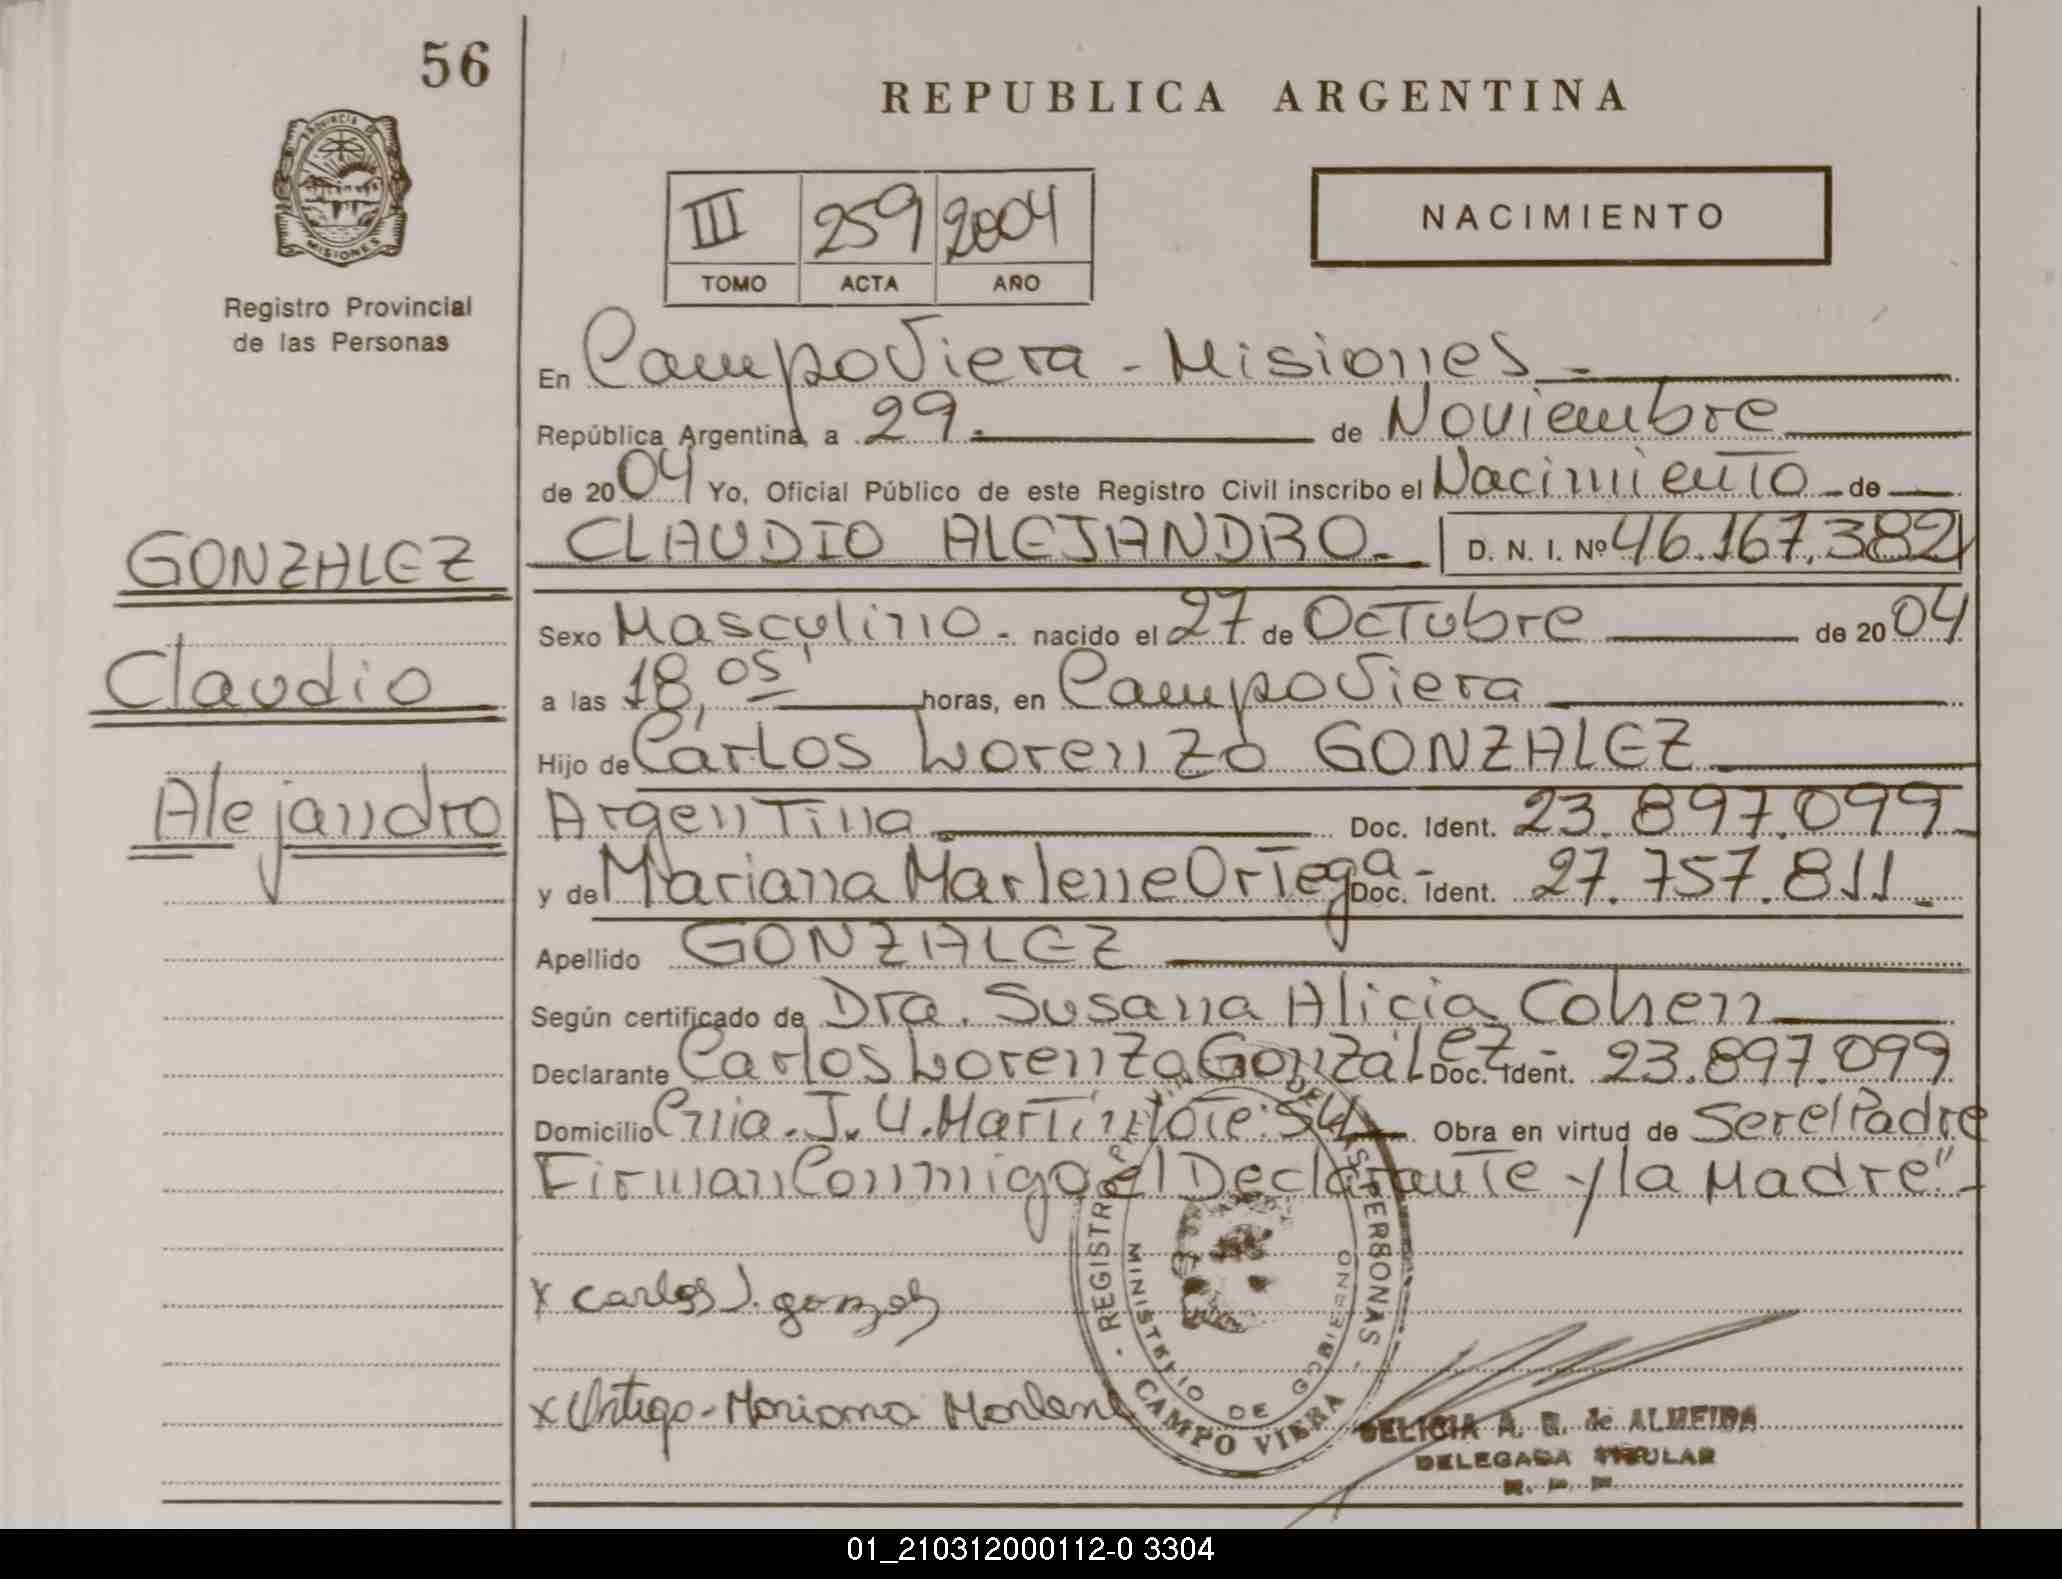 56
REPUBLICA ARGENTINA
PROVINCIA DE
MISIONES
Registro Provincial
de las Personas
III 259 2004
TOMO ACTA AÑO
NACIMIENTO
En Campo Viera - Misiones -
República Argentina, a 29. de Noviembre
de 2004 Yo, Oficial Público de este Registro Civil inscribo el Nacimiento - de
GONZALEZ
Claudio
Alejandro
CLAUDIO ALEJANDRO - D. N. I. Nº 46.167.382
Sexo Masculino - nacido el 27 de Octubre de 2004
a las 18,05' horas, en Campo Viera
Hijo de Carlos Lorenzo GONZALEZ
Argentina Doc. Ident. 23.897.099 -
y de Mariana Marlene Ortega - Doc. Ident. 27.757.811 -
Apellido GONZALEZ
Según certificado de Dra. Susana Alicia Cohen
Declarante Carlos Lorenzo González - Doc. Ident. 23.897.099
Domicilio Cnia. J. U. Martin lote: 54 Obra en virtud de Ser el Padre
Firman Conmigo el Declarante y la Madre" -
x Carlos L. gonzalez
x Ortega - Mariana Marlene
REGISTRO DE LAS PERSONAS -
MINISTERIO DE GOBIERNO
CAMPO VIERA
DELICIA A. G. de ALMEIDA
DELEGADA TITULAR
R. P. P.
01_210312000112-0 3304